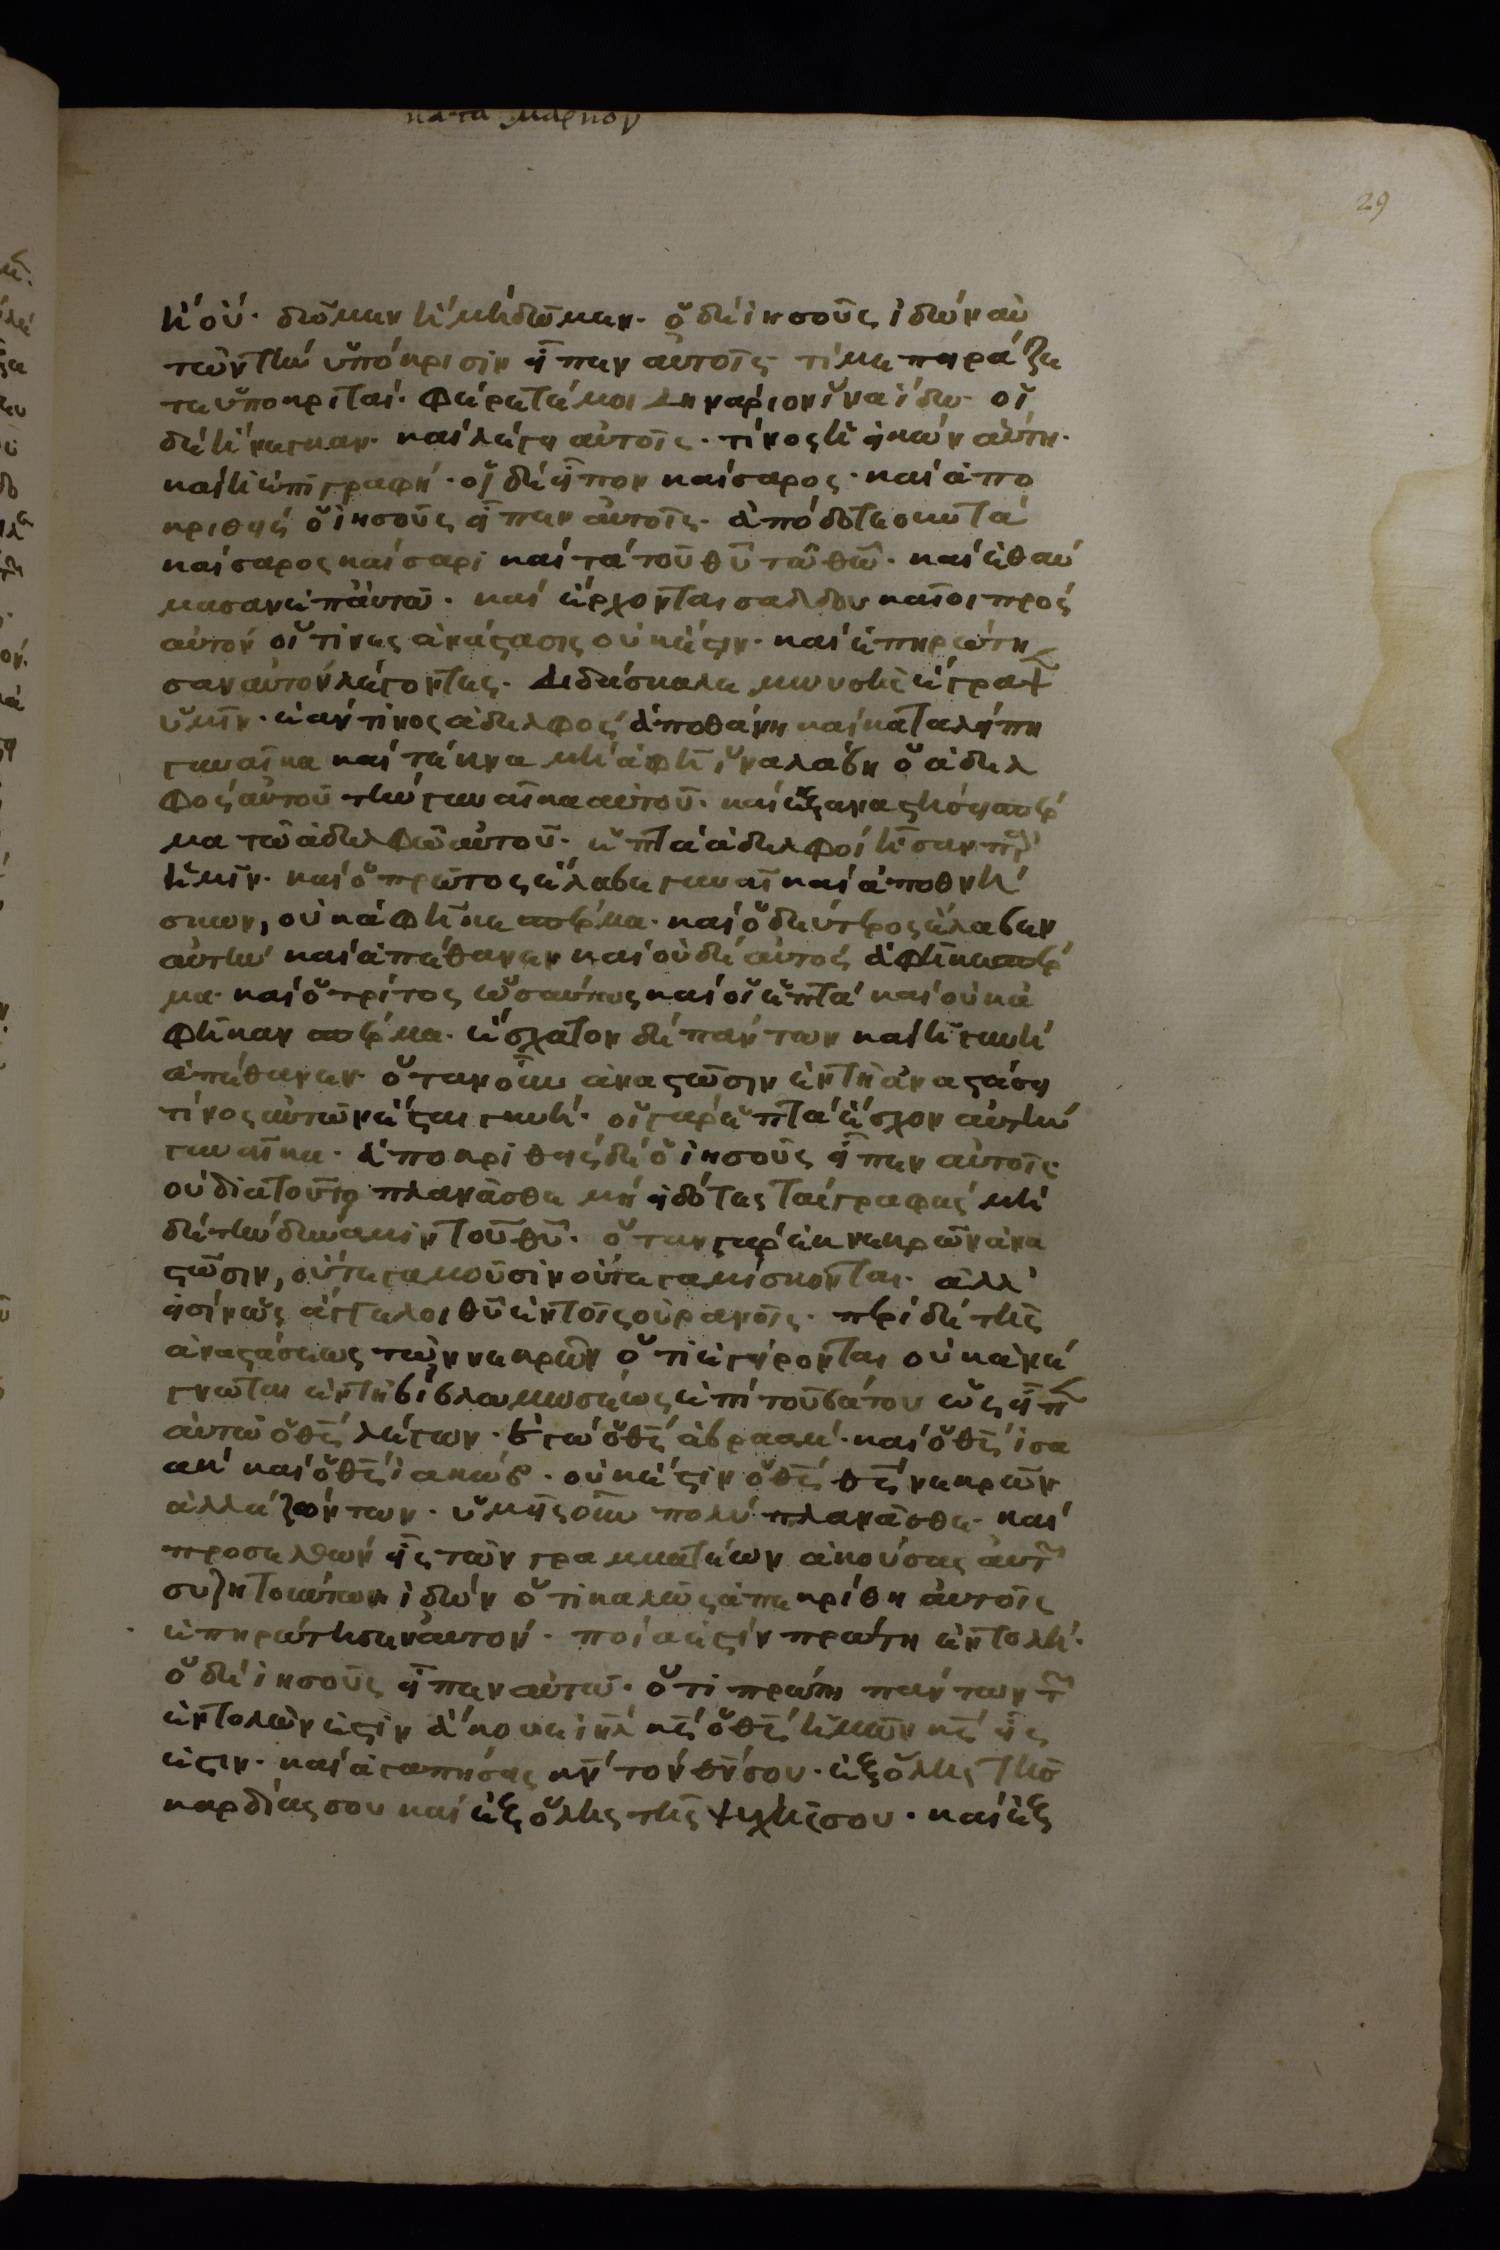 κατα μαρκον
29
ἢ οὐ· δῶμεν ἢ μὴ δῶμεν· ὁ δὲ ἰησοῦς ἰδὼν αὐ
τῶν τὴν ὑπόκρισιν εἶπεν αὐτοῖς τί με πειράζε
τε ὑποκριταί· φέρετέ μοι δηνάριον ἵνα ἴδω· οἱ
δὲ ἤνεγκαν· καὶ λέγει αὐτοῖς· τίνος ἡ εἰκὼν αὕτη·
καὶ ἡ ἐπιγραφή· οἱ δὲ εἶπον καίσαρος· καὶ ἀπο
κριθεὶς ὁ ἰησοῦς εἶπεν αὐτοῖς· ἀπόδοτε οὖν τὰ
καίσαρος καίσαρι καὶ τὰ τοῦ θῦ τῶ θῶ· καὶ ἐθαύ
μασαν ἐπ' αὐτῶ· καὶ ἔρχονται σαδδουκαῖοι πρὸς
αὐτὸν οἵτινες ἀνάστασις οὐκ ἔστιν· καὶ ἐπηρώτη
σαν αὐτὸν λέγοντες· διδάσκαλε μωυσῆς ἔγραψ
ὑμῖν· ἐάν τινος ἀδελφὸς ἀποθάνη καὶ καταλείπη
γυναῖκα καὶ τέκνα μὴ ἀφῆ ἵνα λάβη ὁ ἀδελ
φὸς αὐτοῦ τὴν γυναῖκα αὐτοῦ· καὶ ἐξαναστήσει σπέρ
μα τῶ ἀδελφῶ αὐτοῦ· ἑπτὰ ἀδελφοὶ ἦσαν παρ'
ἡμῖν· καὶ ὁ πρῶτος ἔλαβε γυναῖ καὶ ἀποθνή
σκων, οὐκ ἀφῆκε σπέρμα· καὶ ὁ δεύτερος ἔλαβεν
αὐτὴν καὶ ἀπέθανεν καὶ οὐδὲ αὐτὸς ἀφῆκε σπέρ
μα· καὶ ὁ τρίτος ὡσαύτως καὶ οἱ ἑπτὰ καὶ οὐκ ἀ
φῆκαν σπέρμα· ἔσχατον δὲ πάντων καὶ ἡ γυνὴ
ἀπέθανεν· ὅταν οὖν ἀναστῶσιν ἐν τῆ ἀναστάσει
τίνος αὐτῶν ἔσται γυνή· οἱ γὰρ ἑπτὰ ἔσχον αὐτὴν
γυναῖκα· ἀποκριθεὶς δὲ ὁ ἰησοῦς εἶπεν αὐτοῖς·
οὐ διὰ τοῦτο πλανᾶσθε μὴ εἰδότες τὰς γραφὰς μη
δὲ τὴν δύναμιν τοῦ θῦ· ὅταν γὰρ ἐκ νεκρῶν ἀνα
στῶσιν, οὔτε γαμοῦσιν οὔτε γαμίσκονται· ἀλλ'
εἰσὶν ὡς ἄγγελοι θῦ ἐν τοῖς οὐρανοῖς· περὶ δὲ τῆς
ἀναστάσεως τῶν νεκρῶν ὅτι ἐγείρονται οὐκ ἀνέ
γνωτε ἐν τῆ βίβλω μωσέως ἐπὶ τοῦ βάτου ὡς εἶπ
αὐτῶ ὁ θς λέγων· ἐγὼ ὁ θς ἀβραάμ· καὶ ὁ θς ἰσα
ὰκ καὶ ὁ θς ἰακώβ· οὐκ ἔστιν ὁ θς θς νεκρῶν
ἀλλὰ ζώντων· ὑμεῖς οὖν πολὺ πλανᾶσθε· καὶ
προσελθὼν εἷς τῶν γραμματέων ἀκούσας αὐτ
συζητούντων ἰδὼν ὅτι καλῶς ἀπεκρίθη αὐτοῖς
ἐπηρώτησεν αὐτόν· ποία ἐστὶν πρώτη ἐντολή·
ὁ δὲ ἰησοῦς εἶπεν αὐτῶ· ὅτι πρώτη πάντων τ
ἐντολῶν ἐστὶν ἄκουε ἰηλ κς ὁ θς ἡμῶν κς εἷς
ἐστιν· καὶ ἀγαπήσεις κν τὸν θν σου· ἐξ ὅλης τῆς
καρδίας σου καὶ ἐξ ὅλης τῆς ψυχῆς σου· καὶ ἐξ